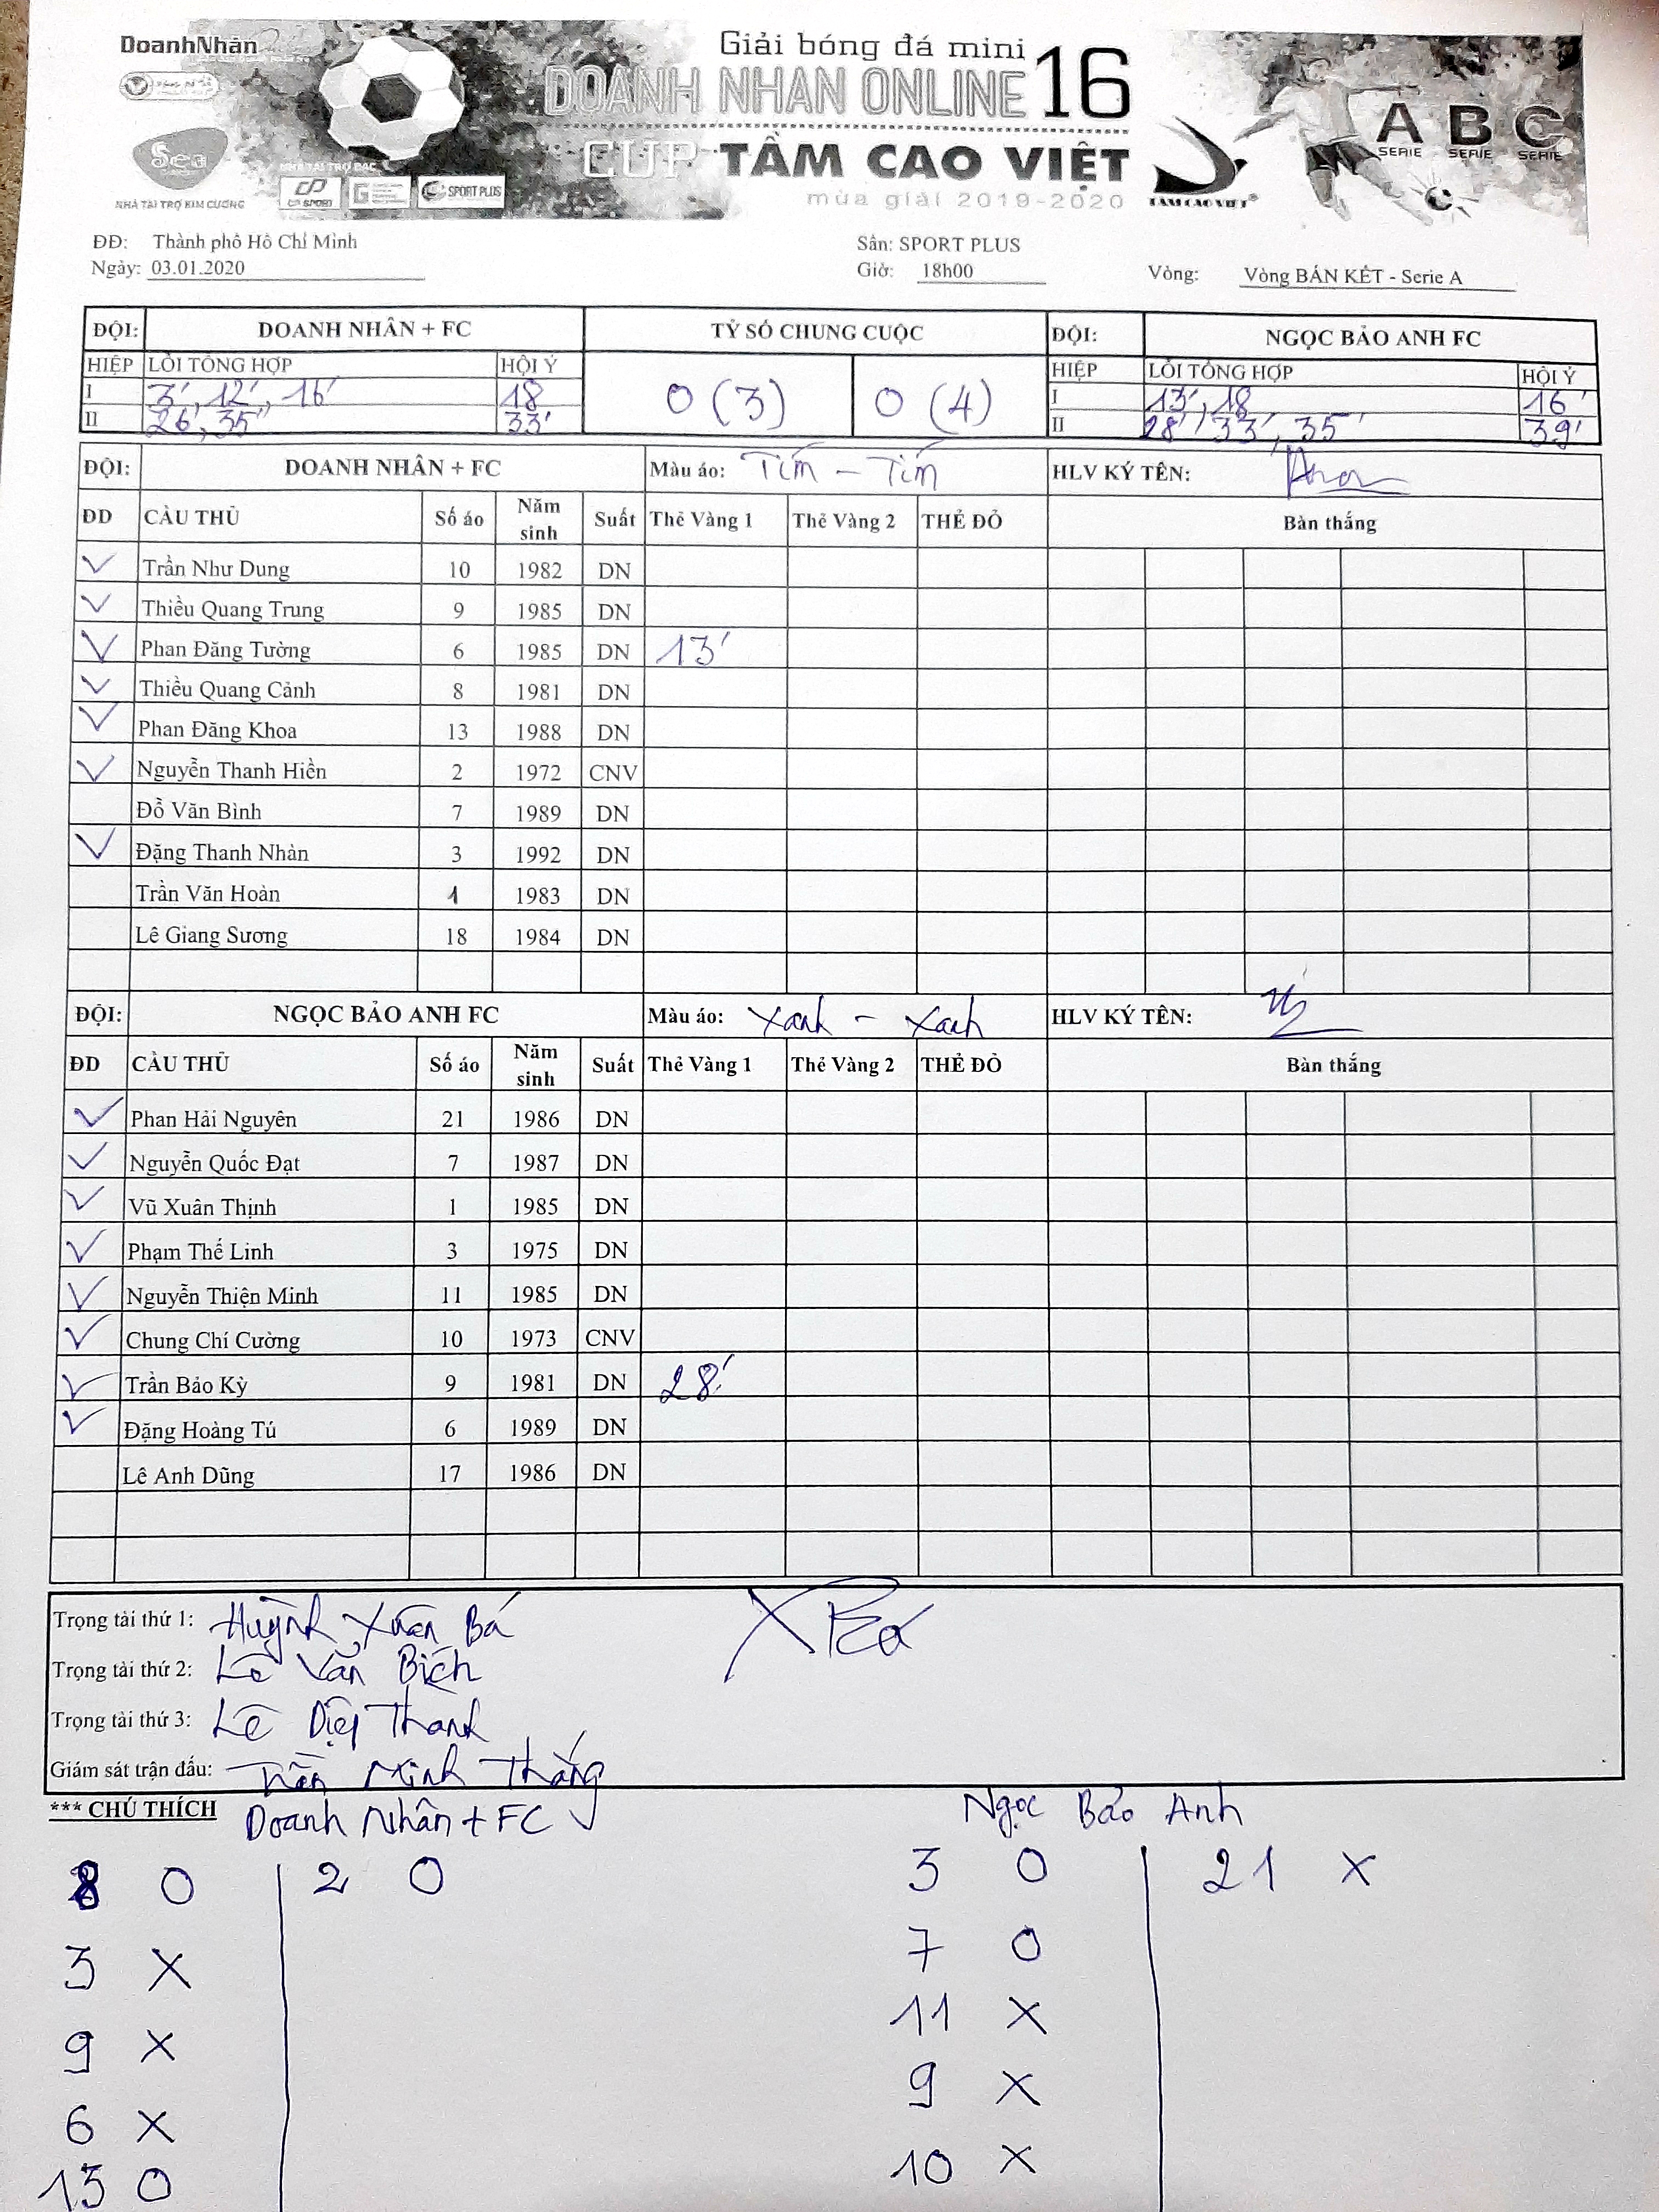 DoanhNhân
Giải bóng đá mini
DOANH NHAN ONLINE 16
CUP TẦM CAO VIỆT
mùa giải 2019-2020
Sea
NHÀ TÀI TRỢ KIM CƯƠNG
NHÀ TÀI TRỢ BẠC
SPORT PLUS
TAM CAO VIET®
A B C
SERIE SERIE SERIE
ĐĐ: Thành phố Hồ Chí Minh Sân: SPORT PLUS
Ngày: 03.01.2020 Giờ: 18h00 Vòng: Vòng BÁN KẾT - Serie A
ĐỘI: DOANH NHÂN + FC TỶ SỐ CHUNG CUỘC ĐỘI: NGỌC BẢO ANH FC
HIỆP LỖI TỔNG HỢP HỘI Ý 0 (3) 0 (4) HIỆP LỖI TỔNG HỢP HỘI Ý
I 3', 12', 16' 18 I 13', 18 16'
II 26', 35' 33' II 28', 33', 35' 39'
ĐỘI: DOANH NHÂN + FC Màu áo: Tím - Tím HLV KÝ TÊN:
ĐD CẦU THỦ Số áo Năm sinh Suất Thẻ Vàng 1 Thẻ Vàng 2 THẺ ĐỎ Bàn thắng
Trần Như Dung 10 1982 DN
Thiều Quang Trung 9 1985 DN
Phan Đăng Tường 6 1985 DN 13'
Thiều Quang Cảnh 8 1981 DN
Phan Đăng Khoa 13 1988 DN
Nguyễn Thanh Hiền 2 1972 CNV
Đỗ Văn Bình 7 1989 DN
Đặng Thanh Nhàn 3 1992 DN
Trần Văn Hoàn 1 1983 DN
Lê Giang Sương 18 1984 DN
ĐỘI: NGỌC BẢO ANH FC Màu áo: Xanh - Xanh HLV KÝ TÊN:
ĐD CẦU THỦ Số áo Năm sinh Suất Thẻ Vàng 1 Thẻ Vàng 2 THẺ ĐỎ Bàn thắng
Phan Hải Nguyên 21 1986 DN
Nguyễn Quốc Đạt 7 1987 DN
Vũ Xuân Thịnh 1 1985 DN
Phạm Thế Linh 3 1975 DN
Nguyễn Thiện Minh 11 1985 DN
Chung Chí Cường 10 1973 CNV
Trần Bảo Kỳ 9 1981 DN 28'
Đặng Hoàng Tú 6 1989 DN
Lê Anh Dũng 17 1986 DN
Trọng tài thứ 1: Huỳnh Xuân Bá
Trọng tài thứ 2: Lê Văn Bích
Trọng tài thứ 3: Lê Diệp Thành
Giám sát trận đấu: Trần Minh Thắng
*** CHÚ THÍCH Doanh Nhân + FC Ngọc Bảo Anh
8 O 2 O 3 O 21 X
3 X 7 O
9 X 11 X
6 X 9 X
13 O 10 X